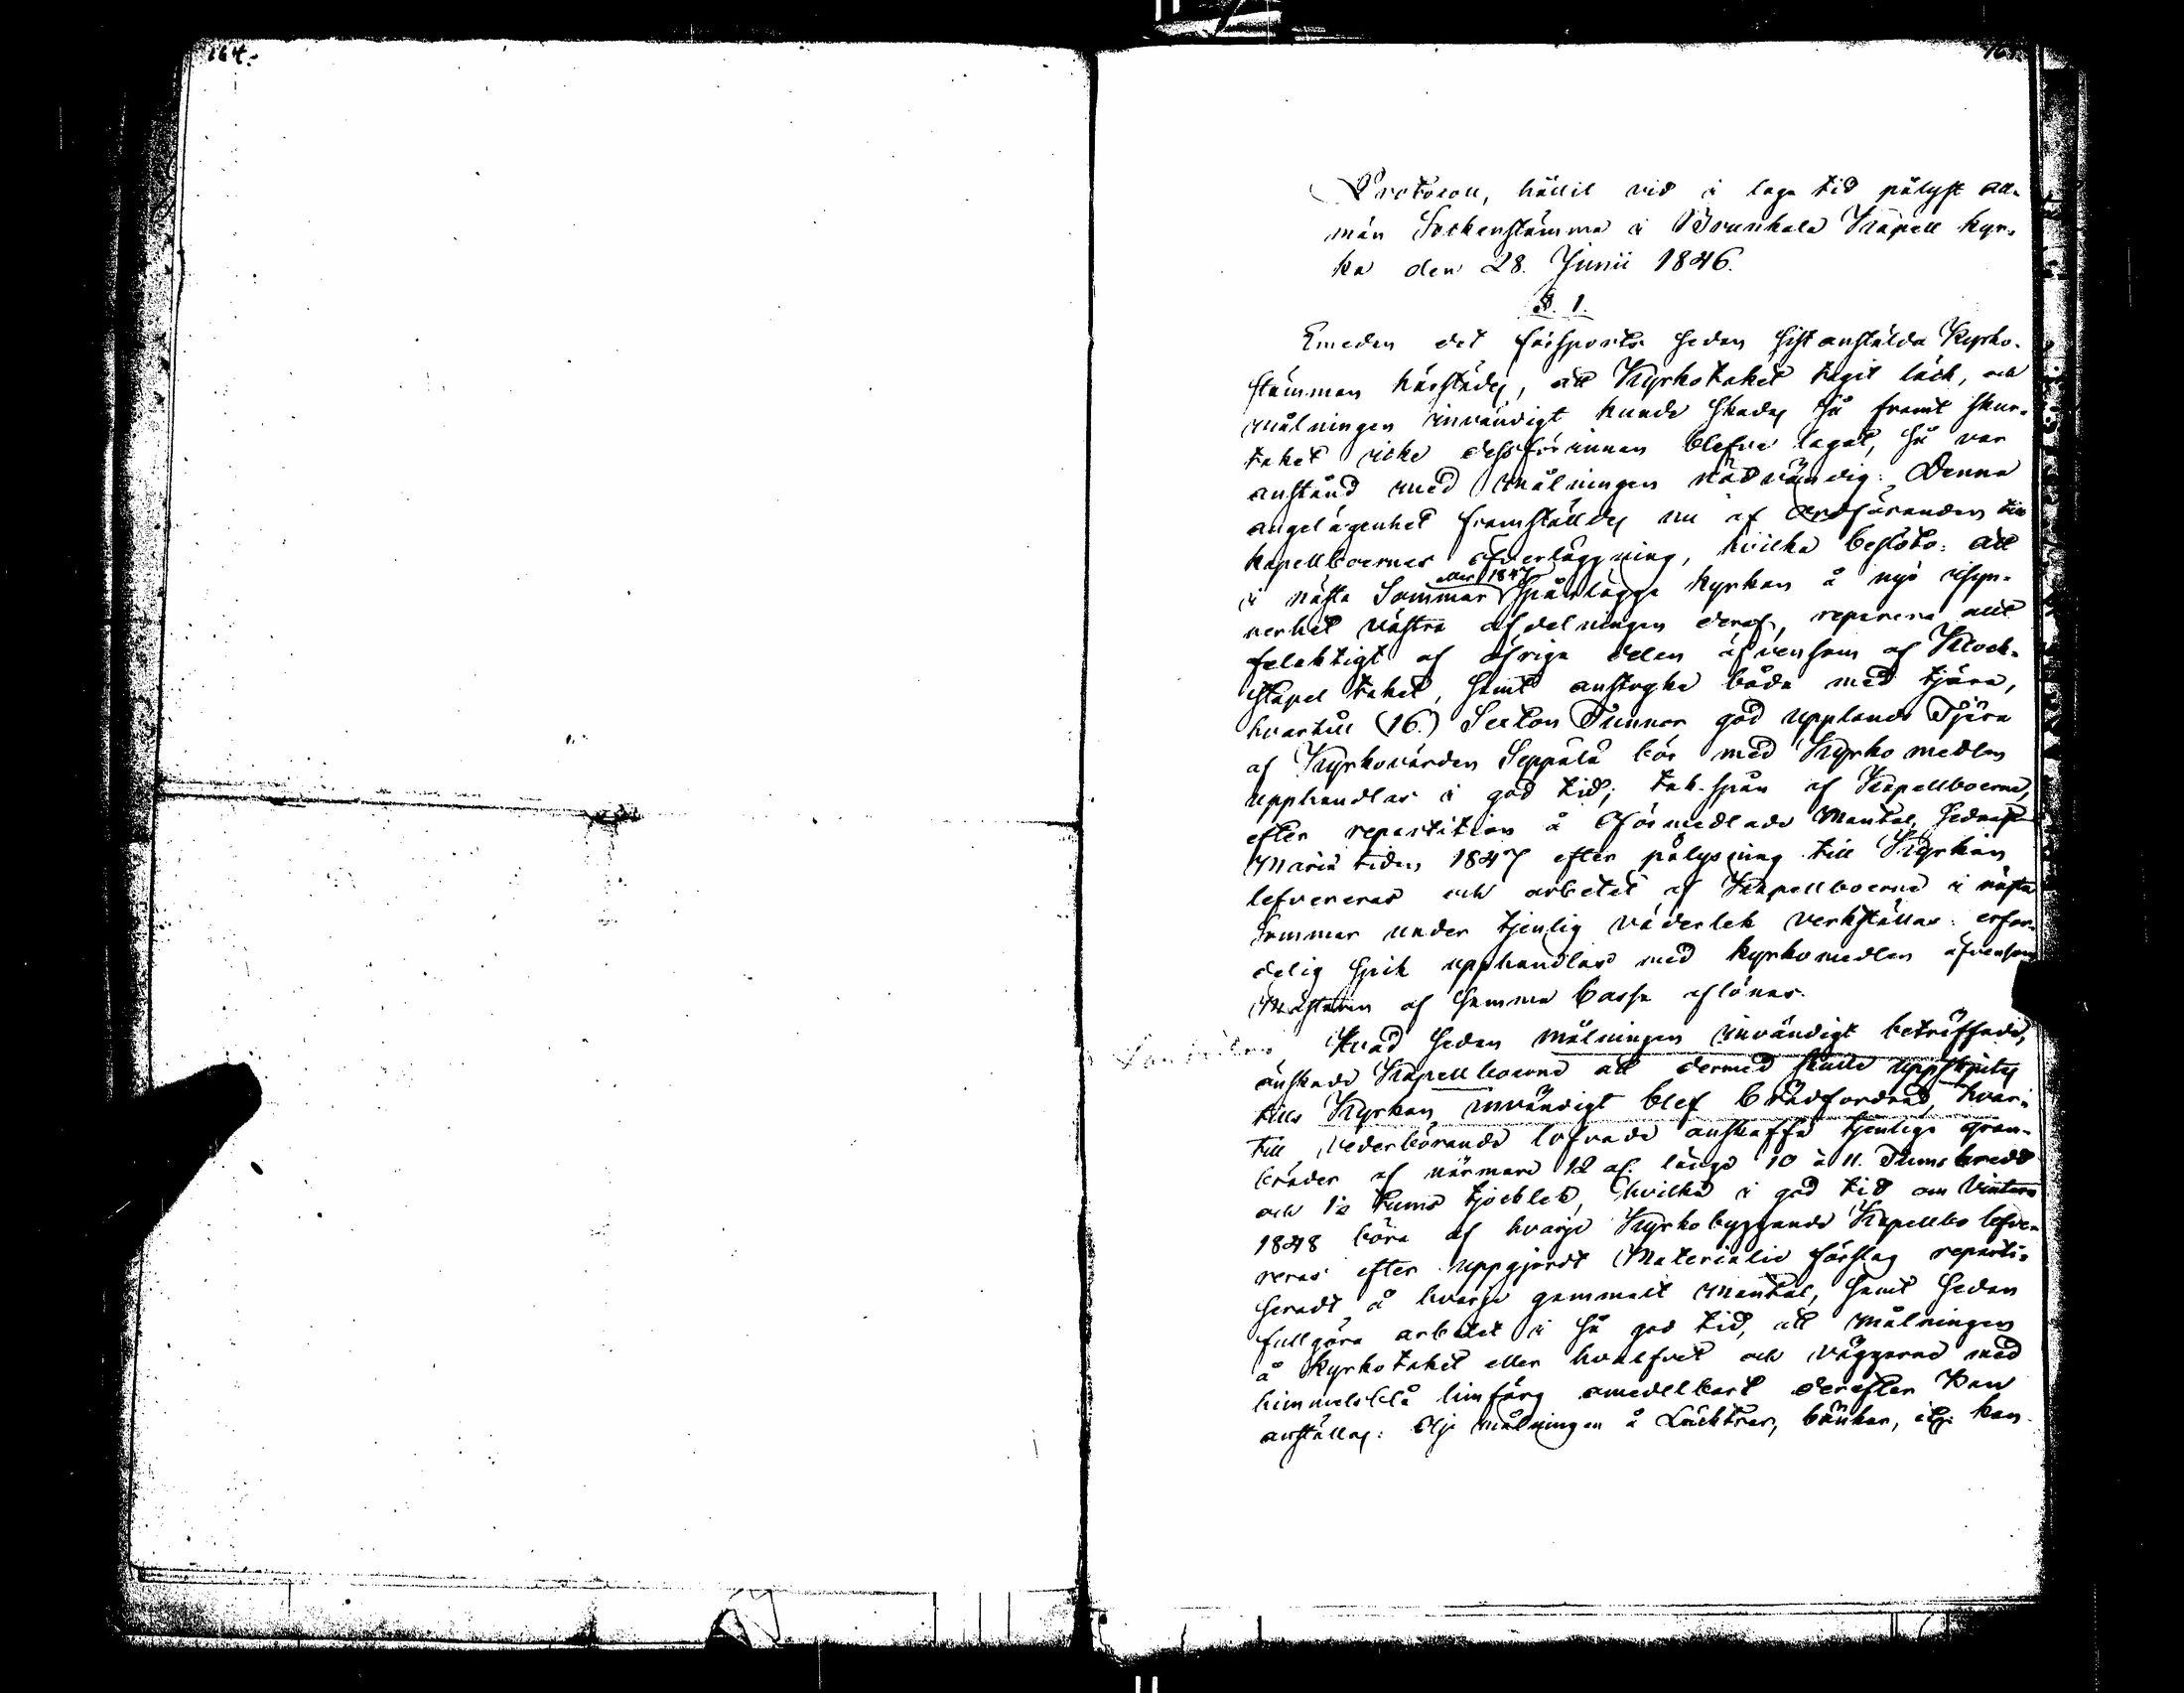 164.
Protocoll, hållit vid i laga tid pålyst all-
män Sockenstämma i Brunkala Kapell kyr-
ka den 28. Junii 1846.
§. 1.
Emedan det försports sedan sist anstälda Kyrko-
stämman härstädes, att Kyrkotaket tagit läck, och
målningen invändigt kunde skadas så framt
taket icke dessförinnan blefve lagat, så var
anstånd med målningen nödvändig: Denna
angelägenhet framställdes nu af Ordföranden till
kapellboernes öfverläggning, hvilka beslöto: att
i nästa Sommar eller 1847 spånlägga kyrkan å nyo
verhet västra afdelningen deraf, reparera allt
felaktigt af öfriga delen äfvensom af Klock-
stapel taket, samt anstryka båda med tjära,
hvartill (16.) Sexton Tunnor god upplands Tjära
af Kyrkovärden Seppälä bör med Kyrko medlen
upphandlas i god tid; tak-spån af Kapellboerne,
efter repartition å Oförmedlade Mantal,
Mariæ tiden 1847 efter pålysning till Kyrkan
lefvereras och arbetet af Kapellboerne i nästa
Sommar under tjenlig väderlek verkställas: erfor-
delig spik upphandlas med kyrkomedlen äfvensom
Mästaren af samma Cassa aflönas.
Hvad sedan målningen invändigt beträffade,
önskade Kapellboerne att dermed skulle uppskjutas
tills Kyrkan invändigt blef brädfordrad, hvar-
till vederbörande lofvade anskaffa tjenliga gran-
bräder af närmare 12 al. längd 10 à 11. Tums bredd
och 1½ tums tjocklek, hvilka i god tid om Vintern
1848 böra af hvarje Kyrkobyggande Kapellbo lefve-
reras efter uppgjordt Materialie förslag reparti-
seradt å hvarje gammalt mantal, samt sedan
fullgöra arbetet i så god tid, att målningen
å Kyrkotaket eller hvalfvet och väggarne med
himmelsblå limfärg omedelbart derefter kan
anställas: Olje målningen å Läcktrar, bänkar, etc: kan